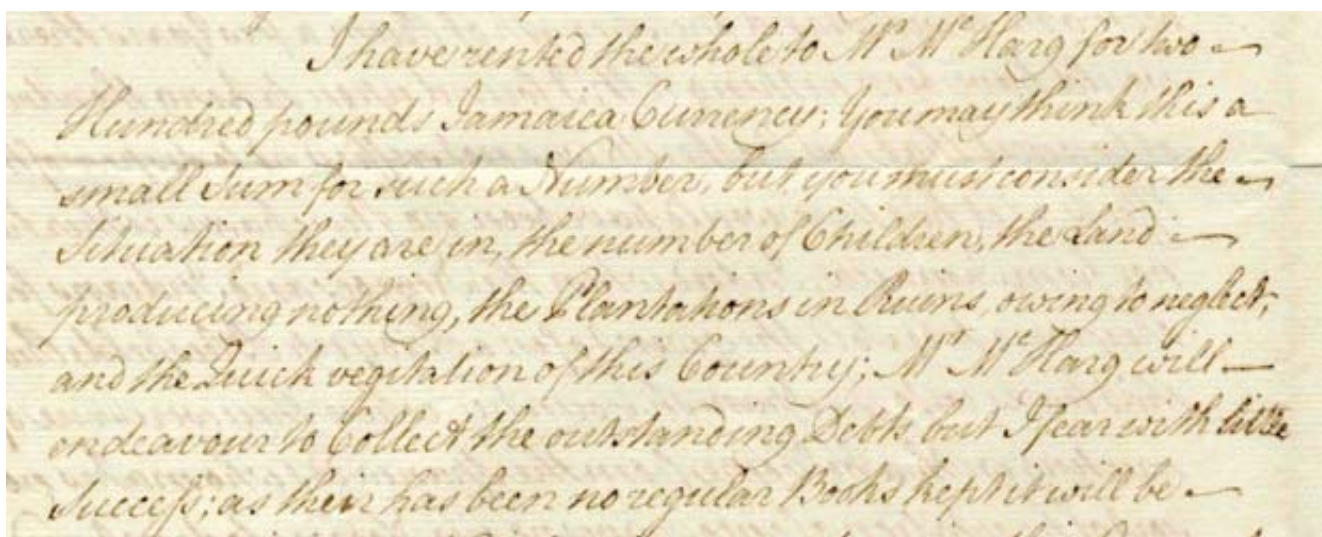 I have rented the whole to Mr. Mc.Harg for two
Hundred pounds Jamaica Currency; You may think this a
small Sum for such a Number, but you must consider the
Situation they are in, the number of Children, the Land
producing nothing, the Plantations in Ruins, owing to neglect,
and the Quick vegitation of this Country; Mr. Mc.Harg will
endeavour to Collect the outstanding Debts but I fear with little
Success; as their has been no regular Books kept it will be